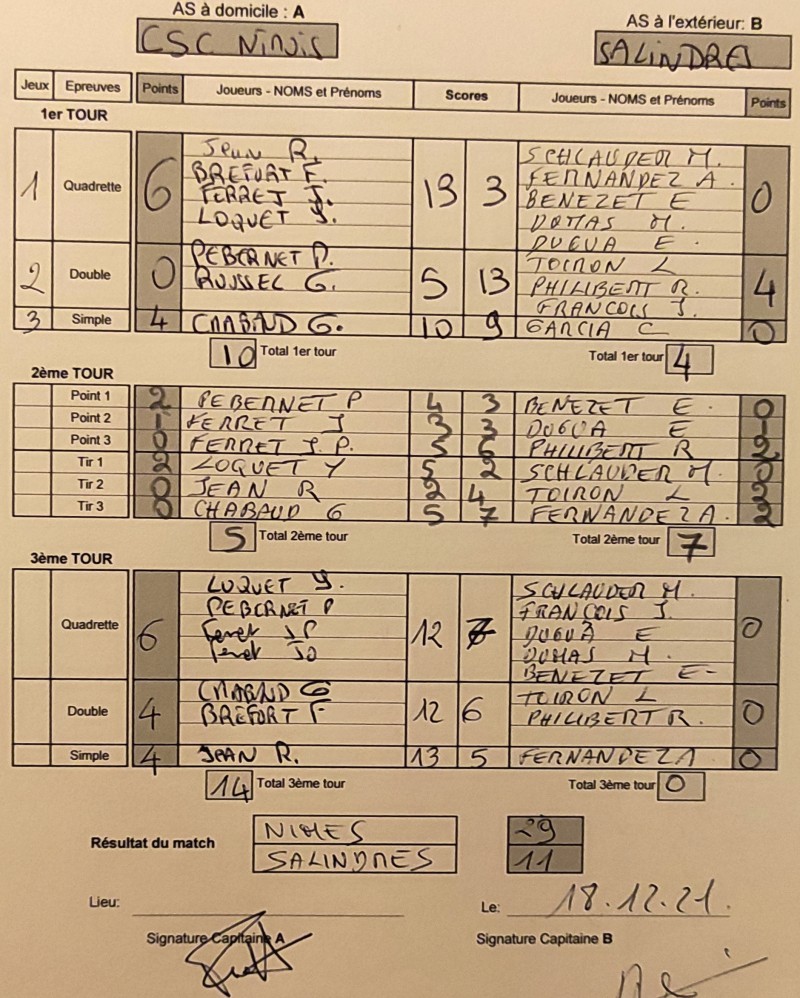 AS à domicile : A
AS à l'extérieur: B
CSC Nimis
SALINDRES
Jeux Epreuves Points Joueurs - NOMS et Prénoms Scores Joueurs - NOMS et Prénoms Points
1er TOUR
1 Quadrette 6 13 3 0
JEAN R.
BREFORT F.
FERRET J.
LOQUET Y.
SCHLAUDER M.
FERNANDEZ A.
BENEZET E
DUMAS M.
DUGUA E.
2 Double 0 5 13 4
PEBERNET P.
ROUSSEL G.
TOIRON L
PHILIBERT R.
FRANCOIS J.
3 Simple 4 CHABAUD G. 10 9 GARCIA C 0
10 Total 1er tour
Total 1er tour 4
2ème TOUR
Point 1 2 PEBERNET P 4 3 BENEZET E. 0
Point 2 1 FERRET J 3 3 DUGUA E 1
Point 3 0 FERRET J.P. 5 6 PHILIBERT R 2
Tir 1 2 LOQUET Y 5 2 SCHLAUDER M. 0
Tir 2 0 JEAN R 2 4 TOIRON L 2
Tir 3 0 CHABAUD G 5 7 FERNANDEZ A. 2
5 Total 2ème tour
Total 2ème tour 7
3ème TOUR
Quadrette 6 12 7 0
LOQUET Y.
PEBERNET P
Ferret JP
Ferret JO
SCHLAUDER M.
FRANCOIS J.
DUGUA E
DUMAS M.
BENEZET E-
Double 4 12 6 0
CHABAUD G
BREFORT F
TOIRON L
PHILIBERT R.
Simple 4 JEAN R. 13 5 FERNANDEZ A 0
14 Total 3ème tour
Total 3ème tour 0
Résultat du match
NIMES 29
SALINDRES 11
Lieu:
Le: 18.12.21.
Signature Capitaine A
Signature Capitaine B